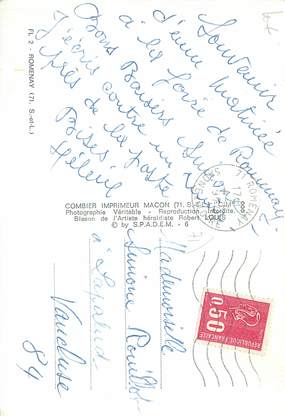 Souvenir
d'une matinée
à la foire de Romenay
Bons Baisers
J'écris contre un
près de la poste
Bises
FL 2 - ROMENAY (71. S.-et-L.)
COMBIER IMPRIMEUR MACON (71. S.-et-L.)
Photographie Véritable - Reproduction Interdite
Blason de l'Artiste héraldiste Robert LOUIS
© by S.P.A.D.E.M. - 6
Mademoiselle
Simone
à
Vaucluse
84
0,50
REPUBLIQUE FRANÇAISE
ROMENAY